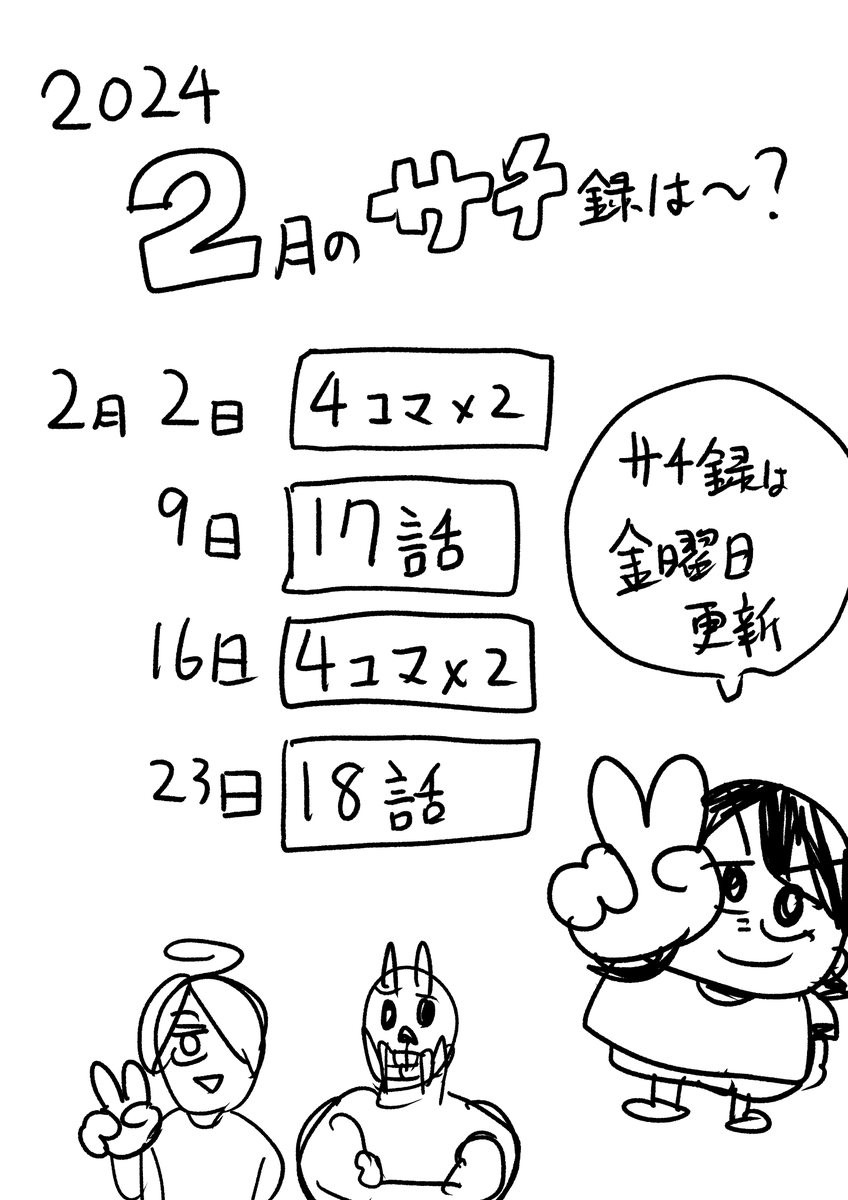 2024
2月のサチ録は〜?
2月2日 4コマ×2
9日 17話
16日 4コマ×2
23日 18話
サチ録は
金曜日
更新